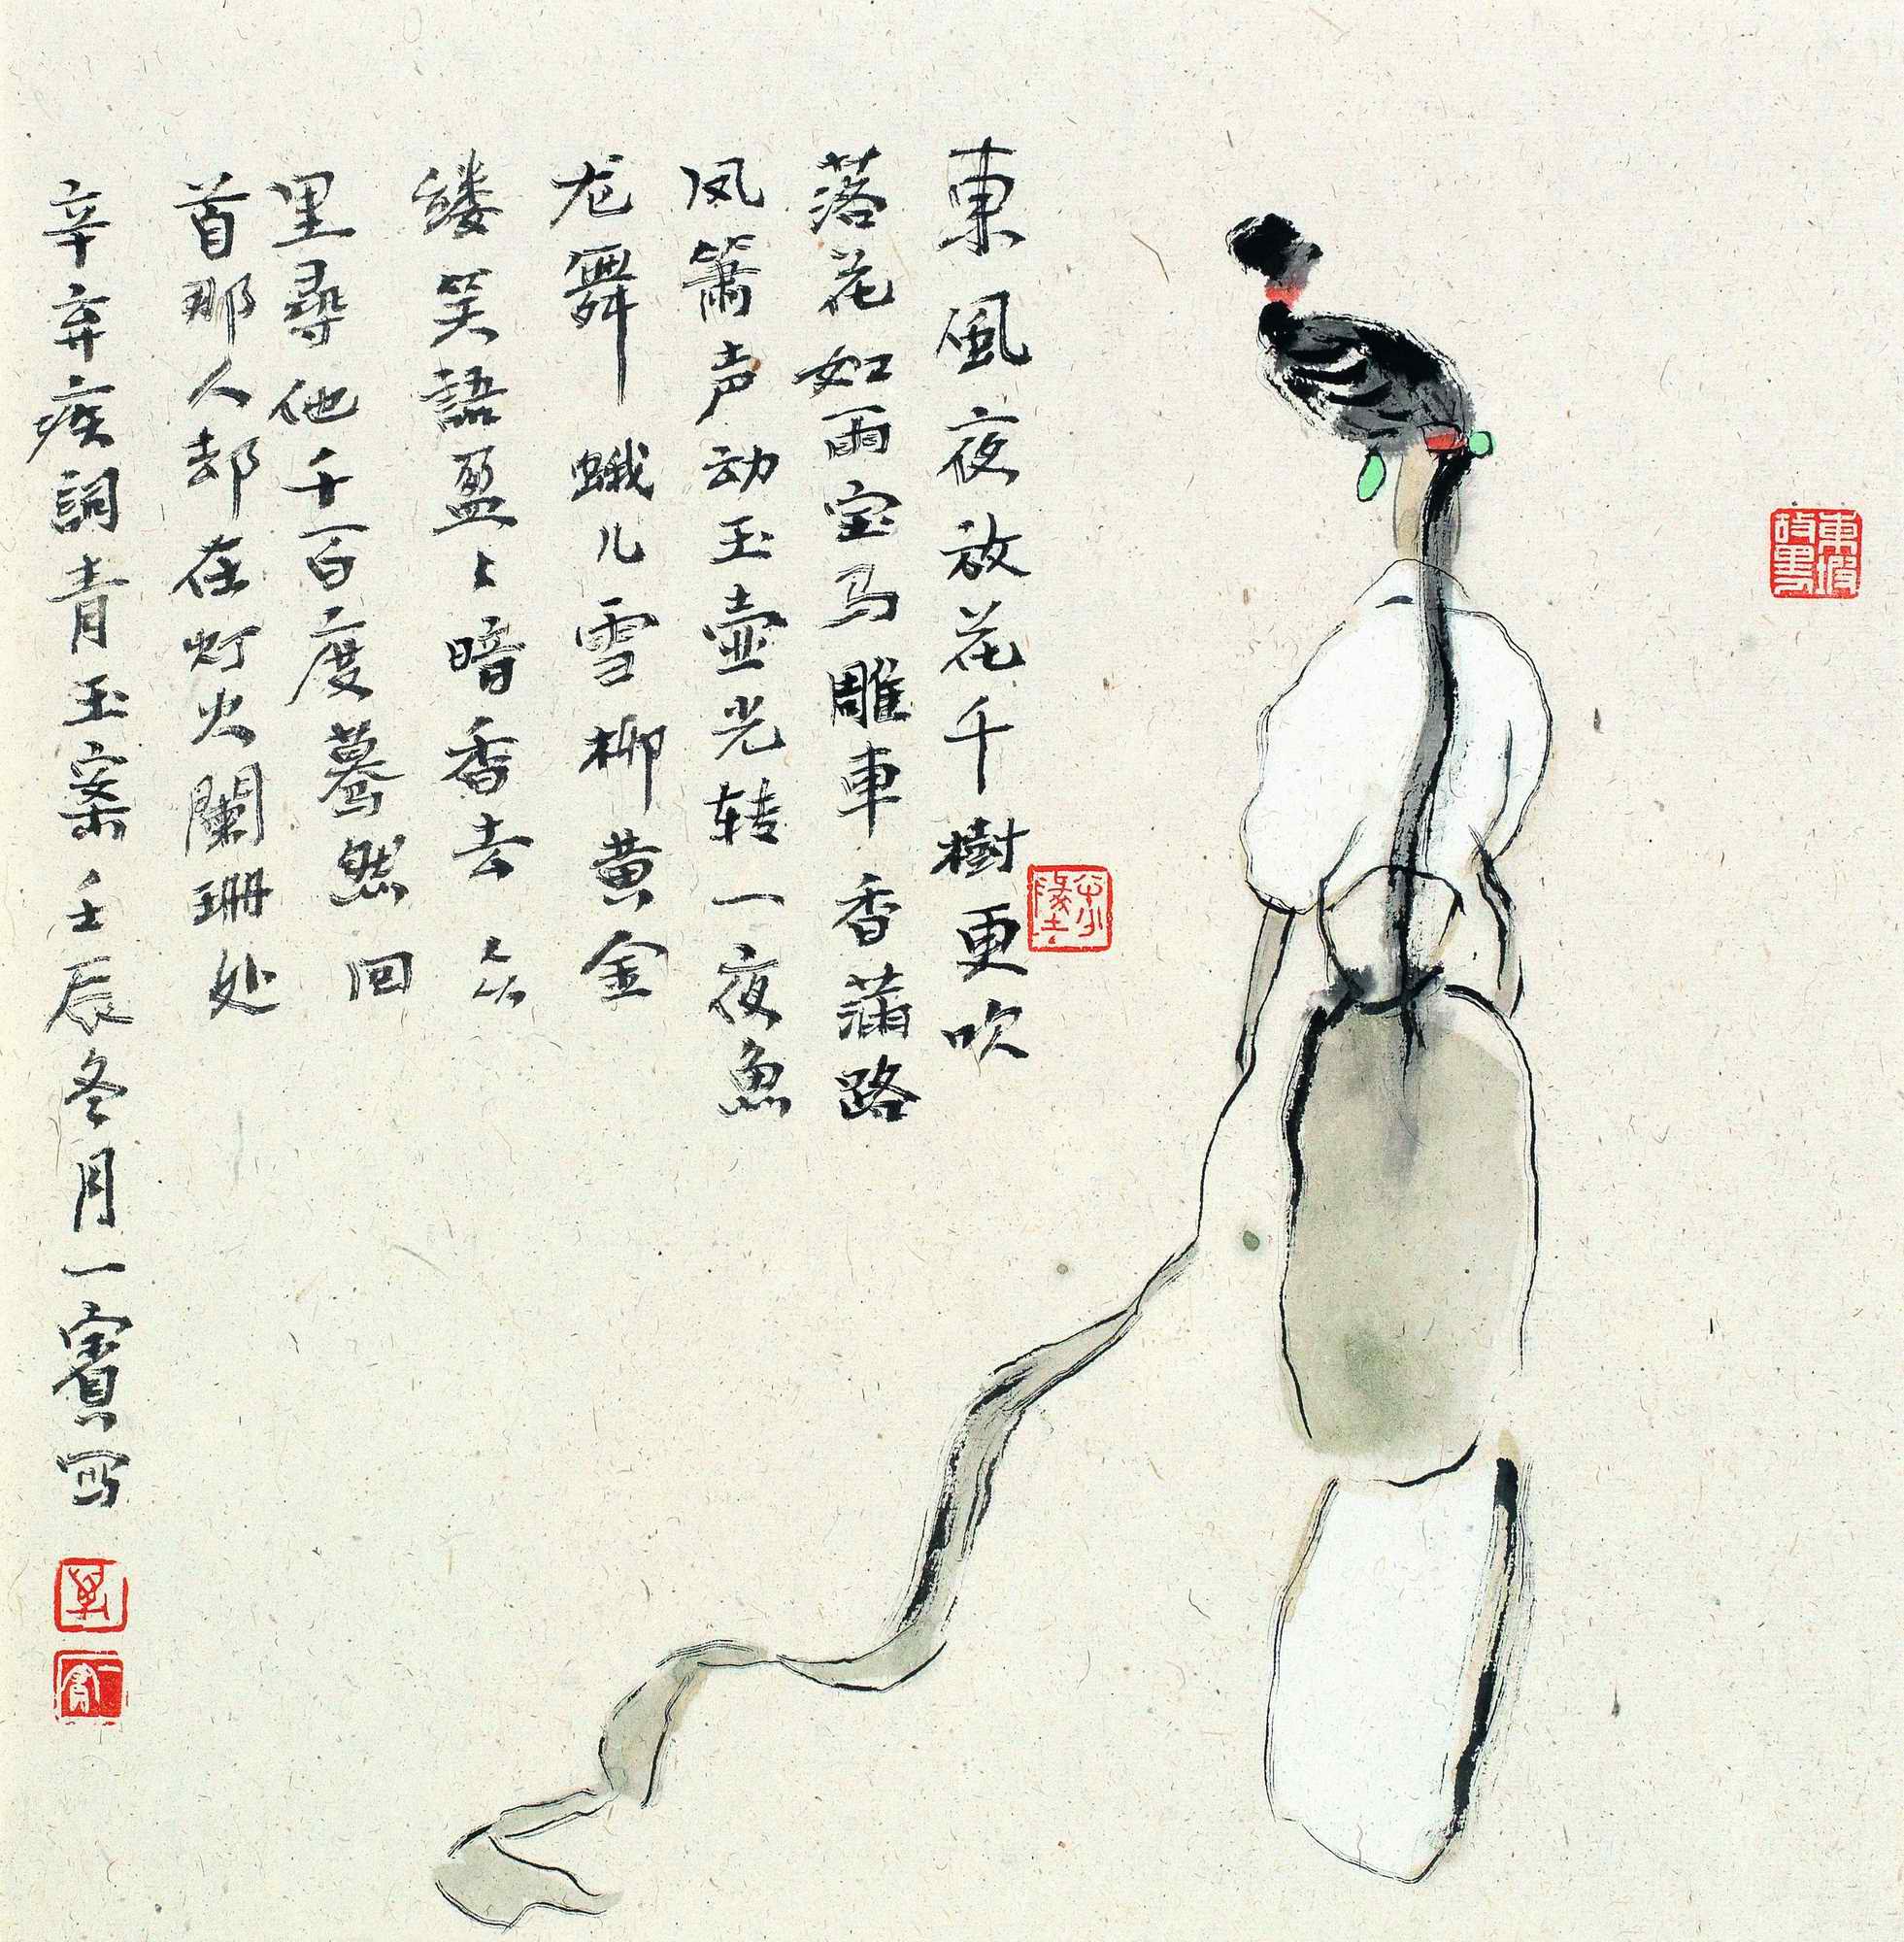 東坡故里
東風夜放花千樹更吹
落花如雨宝马雕車香满路
凤箫声动玉壶光转一夜魚
龙舞蛾儿雪柳黄金
缕笑語盈々暗香去众
里尋他千百度蓦然回
首那人却在灯火闌珊处
辛弃疾詞青玉案壬辰冬月一賓写
一賓